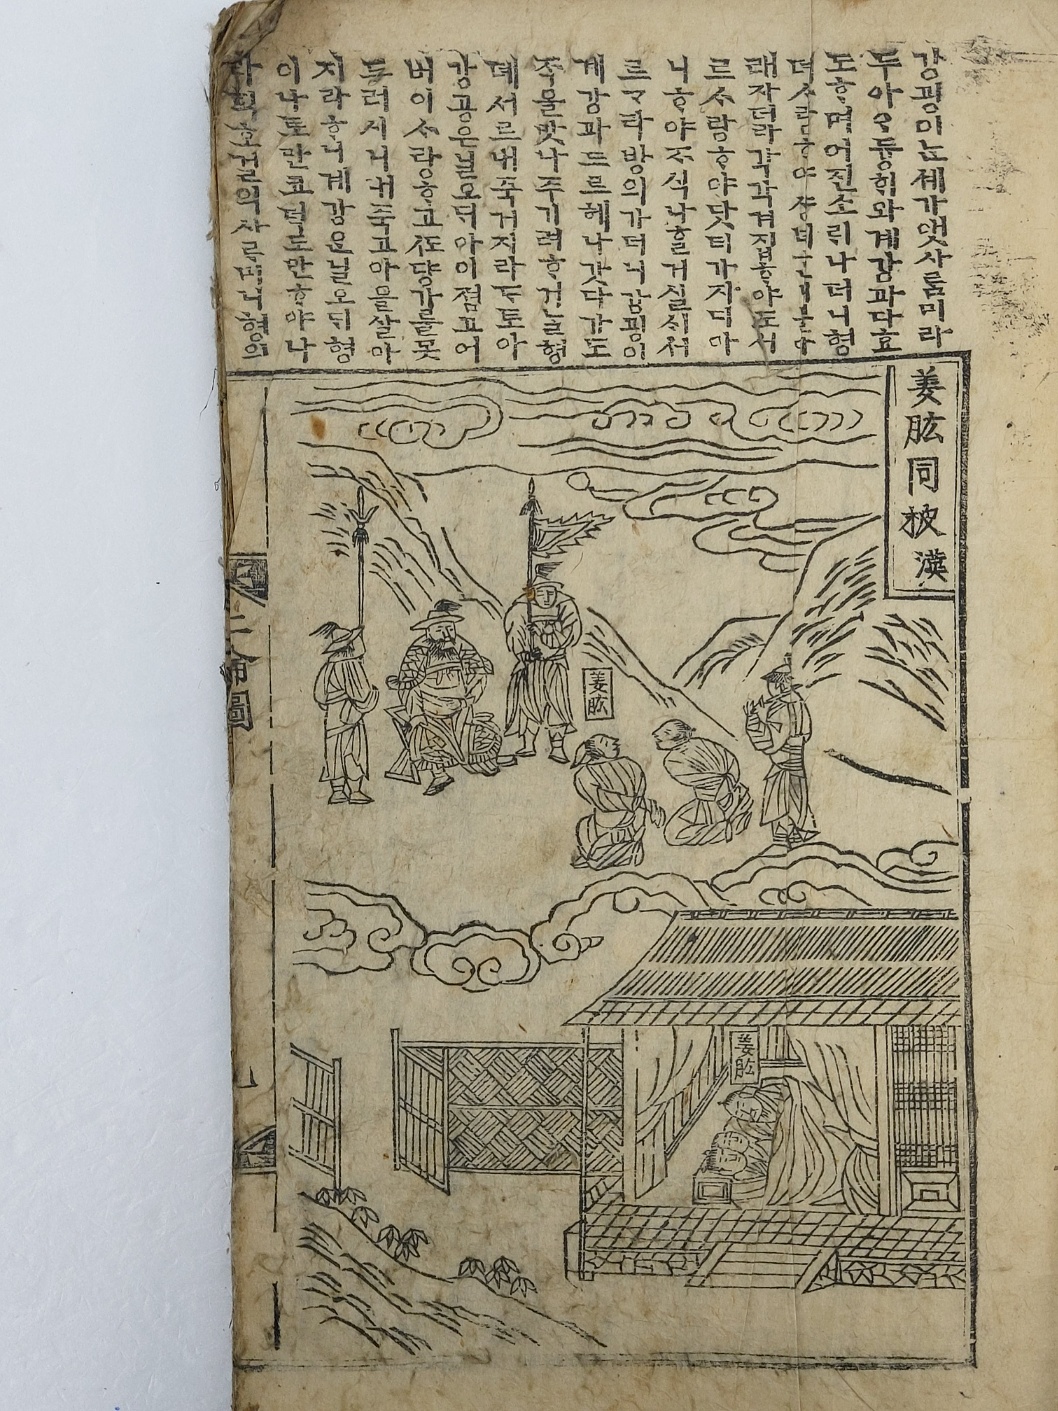 강굉이ᄂᆞᆫ 셰가앳 사ᄅᆞᆷ이라
두 아ᄋᆞ 듕ᄒᆡ와 계강과 다 효
도ᄒᆞ며 어딘 소리 나더니 형
뎨 ᄉᆞ랑ᄒᆞ야
래 자더라 각각 겨집ᄒᆞ야도 서
르 ᄉᆞ랑ᄒᆞ야 닷티 가지 디 아
니ᄒᆞ야 ᄌᆞ식 나ᄒᆞᆯ 거실ᄉᆡ 서
르 ᄀᆞ라 방의 가더니 강굉이
계강과 드르헤 나갓다가 도
ᄌᆞᆨ을 맛나 주기려 ᄒᆞ거ᄂᆞᆯ 형
뎨 서르 내 죽거지라 ᄃᆞ토아
강굉은 닐오ᄃᆡ 아이 졈고 어
버이 ᄉᆞ랑ᄒᆞ고 ᄯᅩ 댱가들 못
드려시니 내 죽고 아을 살아
지라 ᄒᆞ니 계강은 닐오ᄃᆡ 형
이 나토 만코 덕도 만ᄒᆞ야 나
라 희 호걸의 사ᄅᆞᆷ이니 형의
姜肱同被 漢
姜肱
姜肱
二倫圖